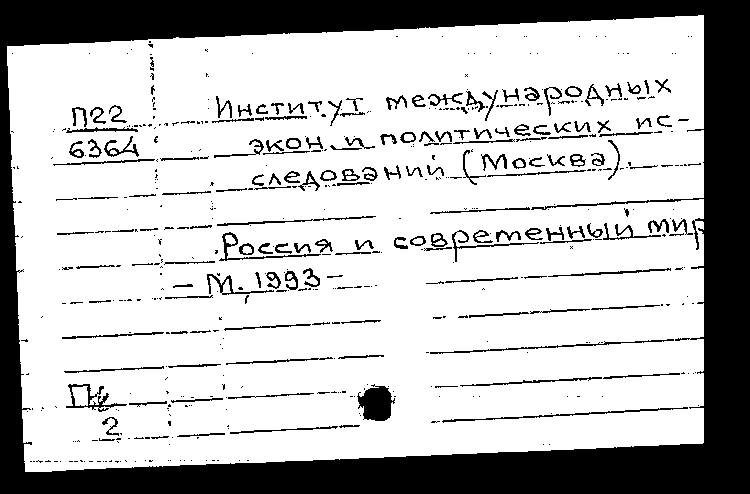 П22
6364
Институт международных
экон. и политических ис-
следований (Москва).
Россия и современный мир
- М., 1993 -
2